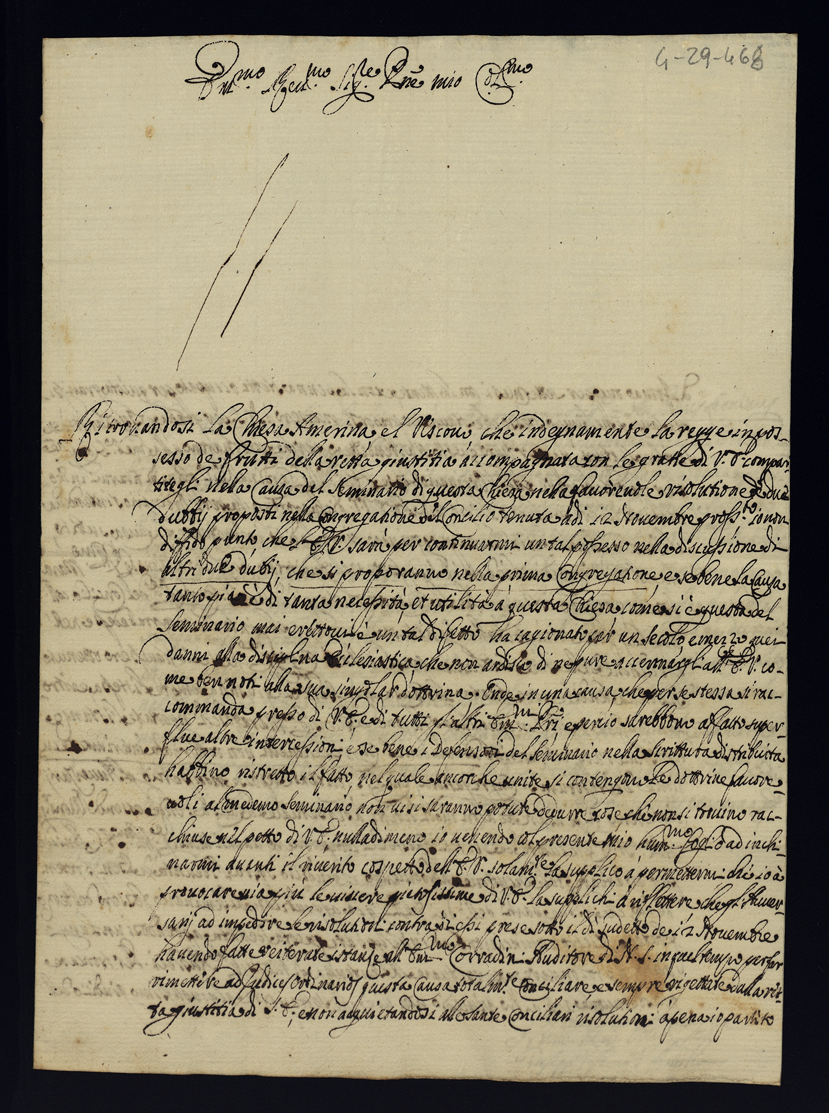 4-29-468
Em.mo Rev.mo Sig.re Prñe mio Col.mo
Ritrovandosi la Chiesa Amerina, e'l Vescovo, che indegnamente la regge in pos-
sesso de frutti della retta giustitia accompagnata con le gratie di V. E. compar-
titegli nella Causa del Seminario di questa Chiesa nella favorevole risolutione de due
Dubbij proposti nella Congregatione del Concilio tenuta a di 12 Novembre pross.to io non
diffido punto che l' E. V. sarà per continuarmi un tal possesso nella discussione di
altri due dubij, che si proporanno nella prima Congregatione e se bene la Causa
tanto pia, è di tanta necessità, et utilità à questa Chiesa com'e si è questa del
Seminario mai eretto un tal difetto ha cagionato per un secolo e mezzo quei
danni alla disciplina Ecclesiastica che non ardisco di ne pure accennargli all' E. V. co-
me ben noti alla sua singolar dottrina. Onde in una causa, che per se stessa si rac-
commanda presso di V. E. e di tutti gl'altri Em.mi Prñi e perciò sarebbono affatto super-
flue altre intercessioni e se bene i Defensori del Seminario nella Scrittura distribuita
habbino ristretto il fatto nel quale ancorche unite si contengano le dottrine favore-
voli al medemo Seminario non vi si saranno potute dedurre cose che non si trovino rac-
chiuse nel petto di V. E. nulladimeno io venendo col presente mio hum.mo fog.o ad inchi-
narmi avanti il riverito cospetto dell' E. V. solam.te la supplico à permettermi che io à
provocare via più le viscere pietosissime di V. E. la supplichi à riflettere che gl'Aver-
sarij ad impedire le risolutioni contra di essi prese sotto il di sudetto de 12 Novembre
havendo fatte reiterate istanze all' Em.mo Corradini Auditore di N. S. in quel tempo per far
rimettere ad Judices Ordinarios questa causa total.te Conciliare e sempre rigettate dalla ret-
ta giustitia di S. E., e non acquietandosi alle sante Conciliari risolutioni apena io partito